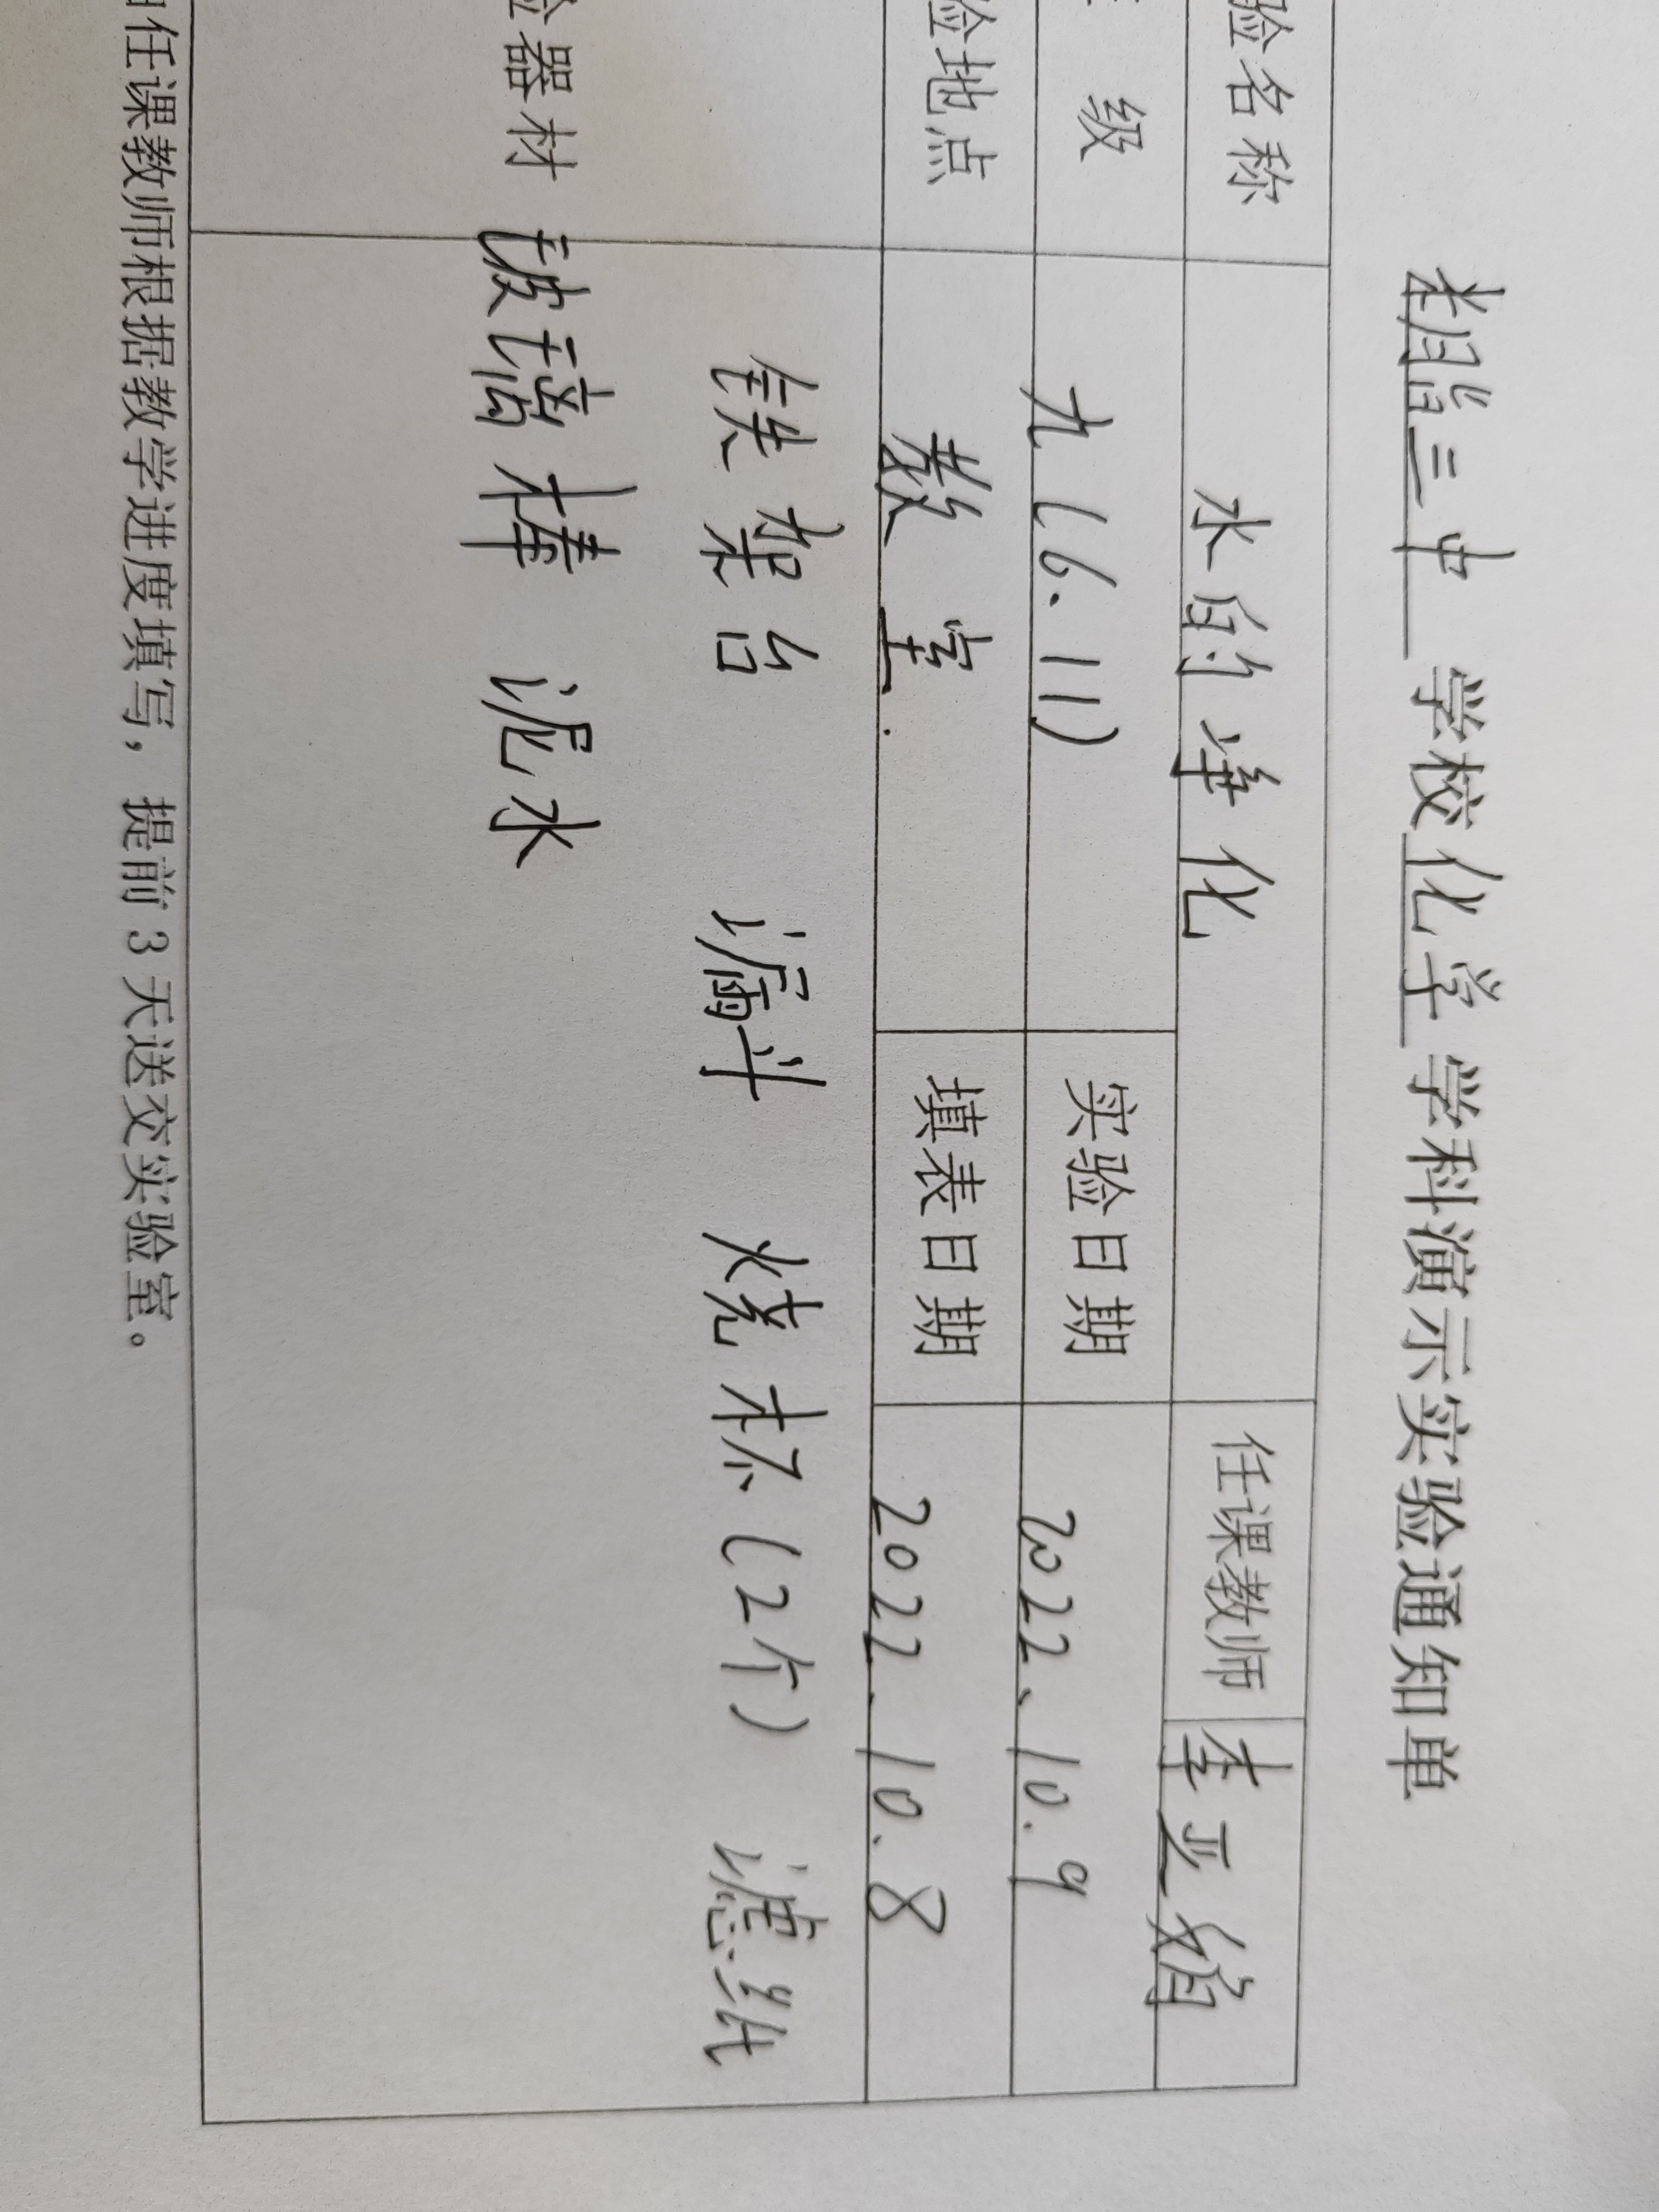 三中 学校 化学 学科演示实验通知单
验名称 水的净化 任课教师 李亚娟
级 九(6.11) 实验日期 2022、10.9
验地点 教室. 填表日期 2022、10.8
铁架台 漏斗 烧杯(2个) 滤纸
验器材 玻璃棒 泥水
任课教师根据教学进度填写，提前3天送交实验室。